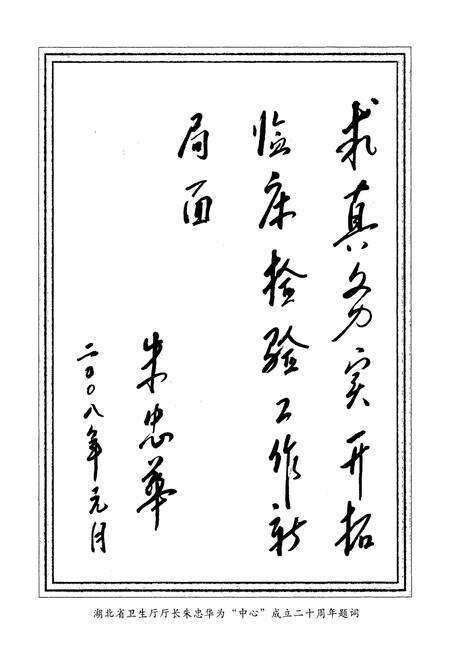 求真务实开拓
临床检验工作新
局面
朱忠華
二〇〇八年元月
湖北省卫生厅厅长朱忠华为“中心”成立二十周年题词